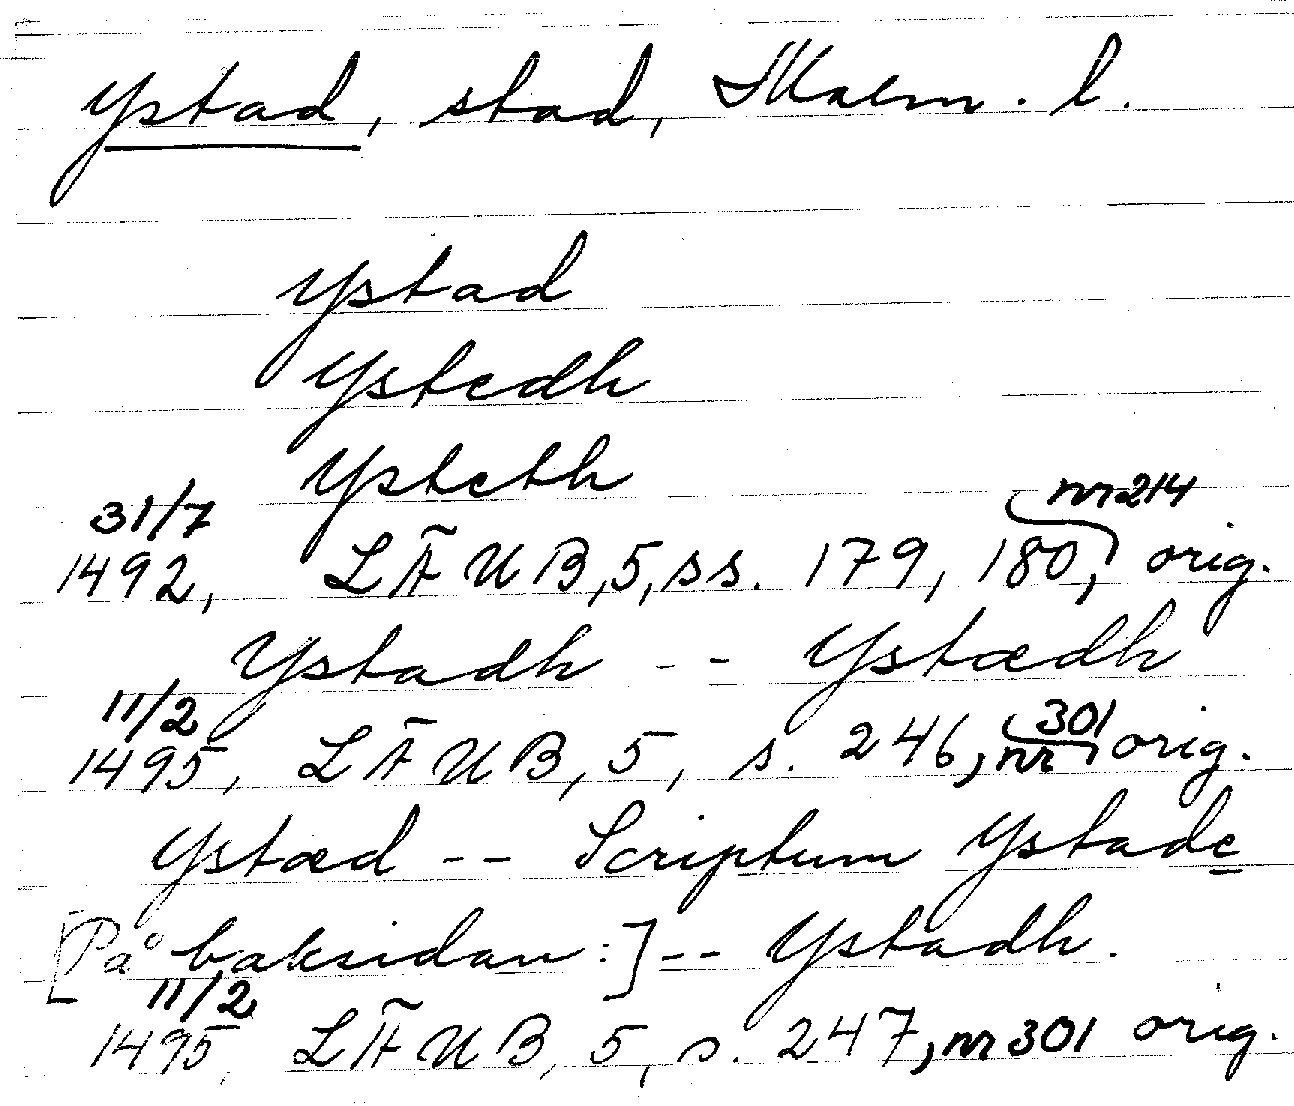 Ystad, stad, Malm. l.
Ystad
Ystedh
Ysteth
31/7 nr 214
1492, LÄUB, 5, ss. 179, 180, orig.
Ystadh -- Ystædh
11/2 301
1495, LÄUB, 5, s. 246, nr orig.
Ystæd -- Scriptum Ystade
[På baksidan:] -- Ystadh.
11/2
1495, LÄUB, 5, s. 247, nr 301 orig.